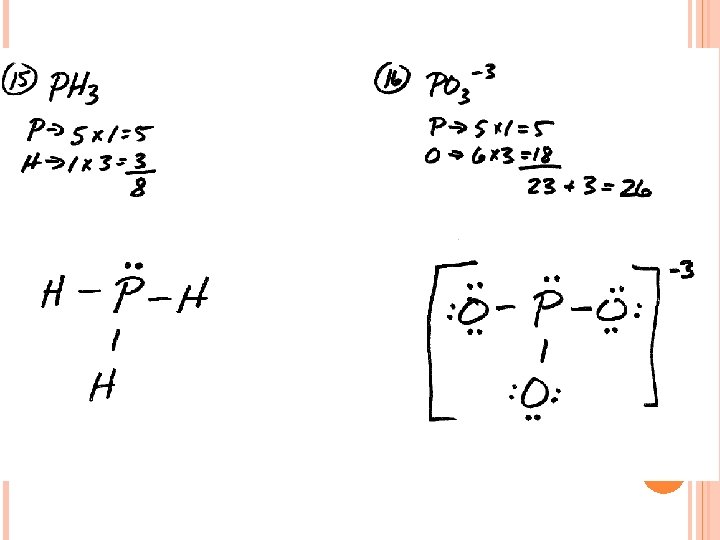 (15) PH₃
P→ 5 x 1 = 5
H→ 1 x 3 = 3
8
H – P̈ – H
|
H
(16) PO₃⁻³
P→ 5 x 1 = 5
O→ 6 x 3 = 18
23 + 3 = 26
[:Ö – P̈ – Ö:]⁻³
|
:O: